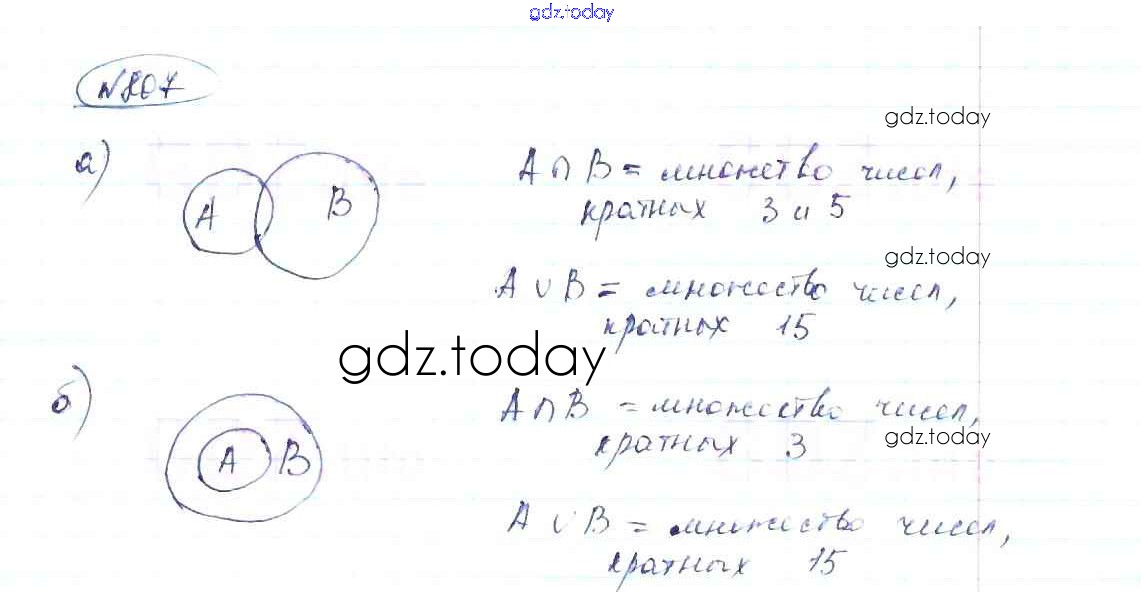 gdz.today
№807
gdz.today
а)
А ∩ В = множество чисел,
А В
кратных 3 и 5
gdz.today
А ∪ В = множество чисел,
кратных 15
gdz.today
б)
А ∩ В = множество чисел,
кратных 3
gdz.today
А В
А ∪ В = множество чисел,
кратных 15